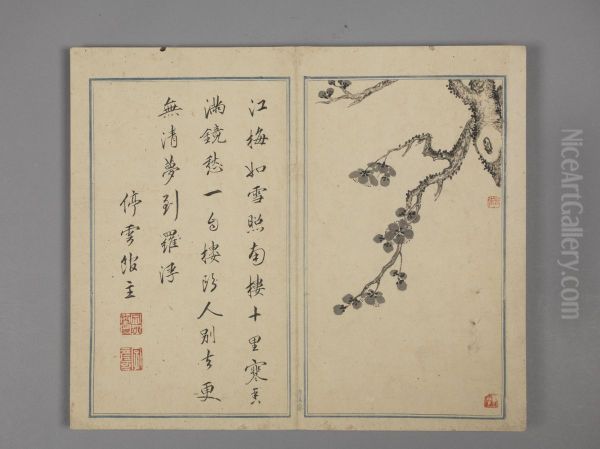 江梅如雪照南樓十里寒香
滿鏡愁一自樓頭人別去更
無清夢到羅浮
停雲館主
NiceArtGallery.com